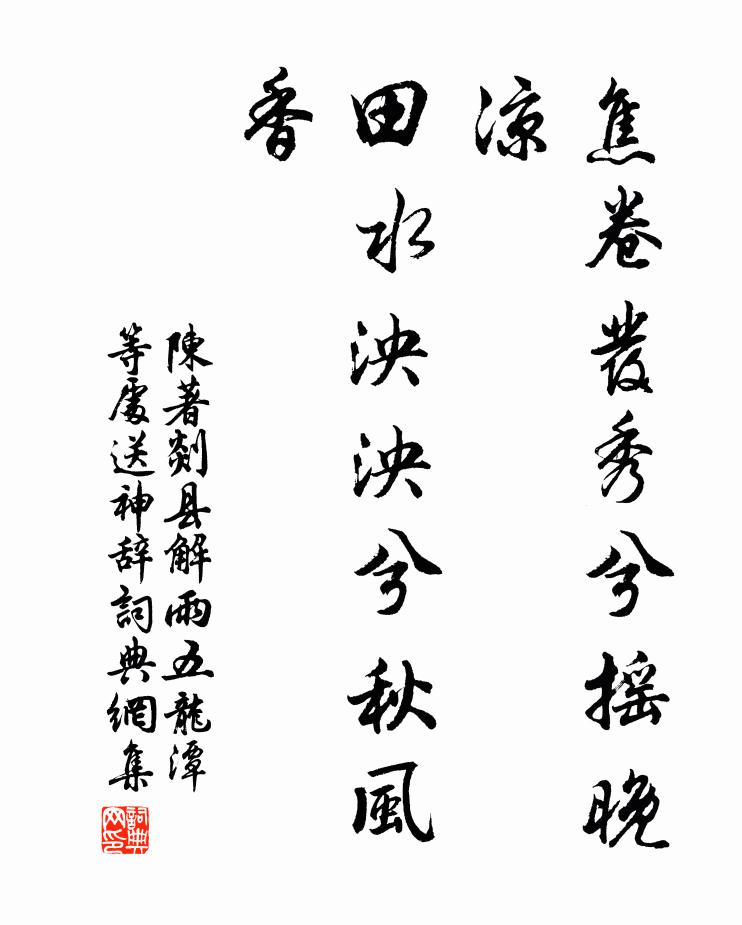 焦卷發秀兮摇晚
涼
田水泱泱兮秋風
香
陳著剡县解雨五龍潭
等處送神辞詞典網集
詞典網印